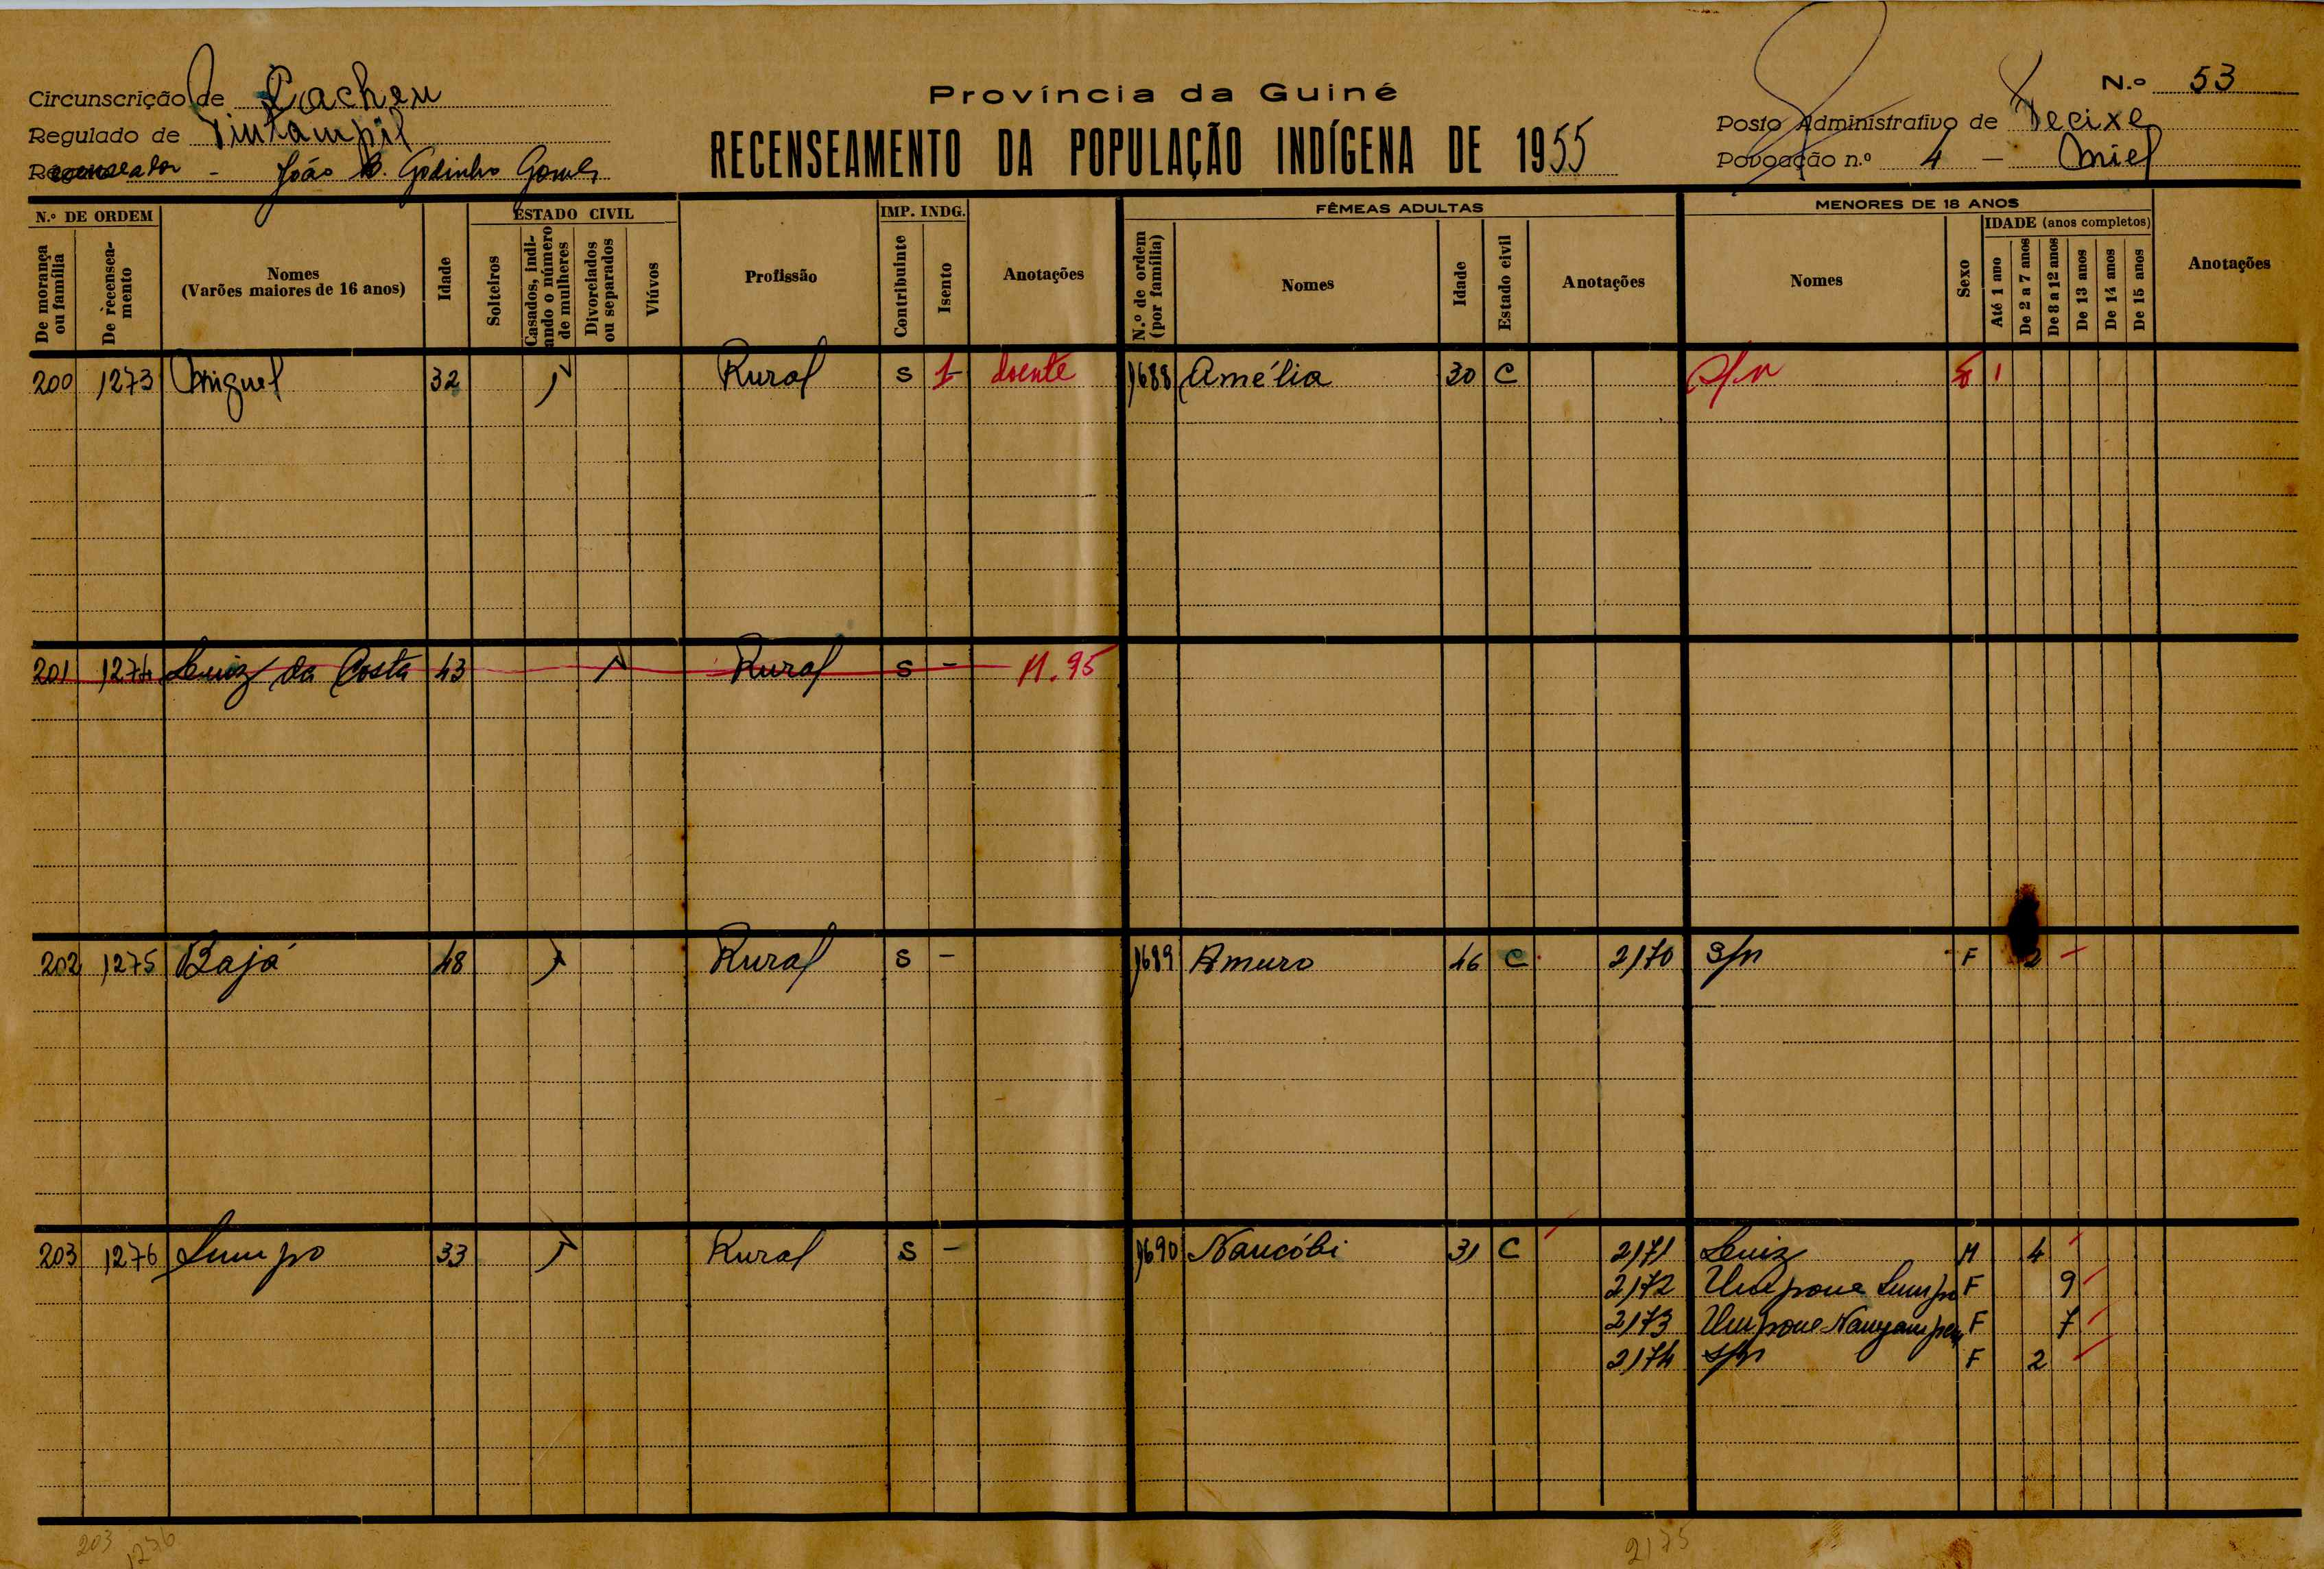 Província da Guiné
N.º 53
Circunscrição de Cacheu
Regulado de
Recenseador - João B. Godinho Gomes
RECENSEAMENTO DA POPULAÇÃO INDÍGENA DE 1955
Posto Administrativo de
Povoação n.º 4 -
N.º DE ORDEM
De morança ou família
De recenseamento
Nomes
(Varões maiores de 16 anos)
Idade
ESTADO CIVIL
Solteiros
Casados, indicando o número de mulheres
Divorciados ou separados
Viúvos
Profissão
IMP. INDG.
Contribuinte
Isento
Anotações
FÊMEAS ADULTAS
N.º de ordem (por família)
Nomes
Idade
Estado civil
Anotações
MENORES DE 18 ANOS
Nomes
Sexo
IDADE (anos completos)
Até 1 ano
De 2 a 7 anos
De 8 a 12 anos
De 13 anos
De 14 anos
De 15 anos
Anotações
200 1273 Miguel 32 Rural S 1 doente 1688 Amélia 30 C S/n 1
201 1274 Luiz da Costa 43 1 Rural S - M. 95
202 1275 Bajá 48 1 Rural S - 1689 Amuro 46 C 2170 S/n F 2
203 1276 Lumpo 33 1 Rural S - 1690 Nancóbi 31 C 2171 Luiz M 4
2172 Umpone Lumpo F 9
2173 Umpone F 7
2174 S/n F 2
203 1276 2175